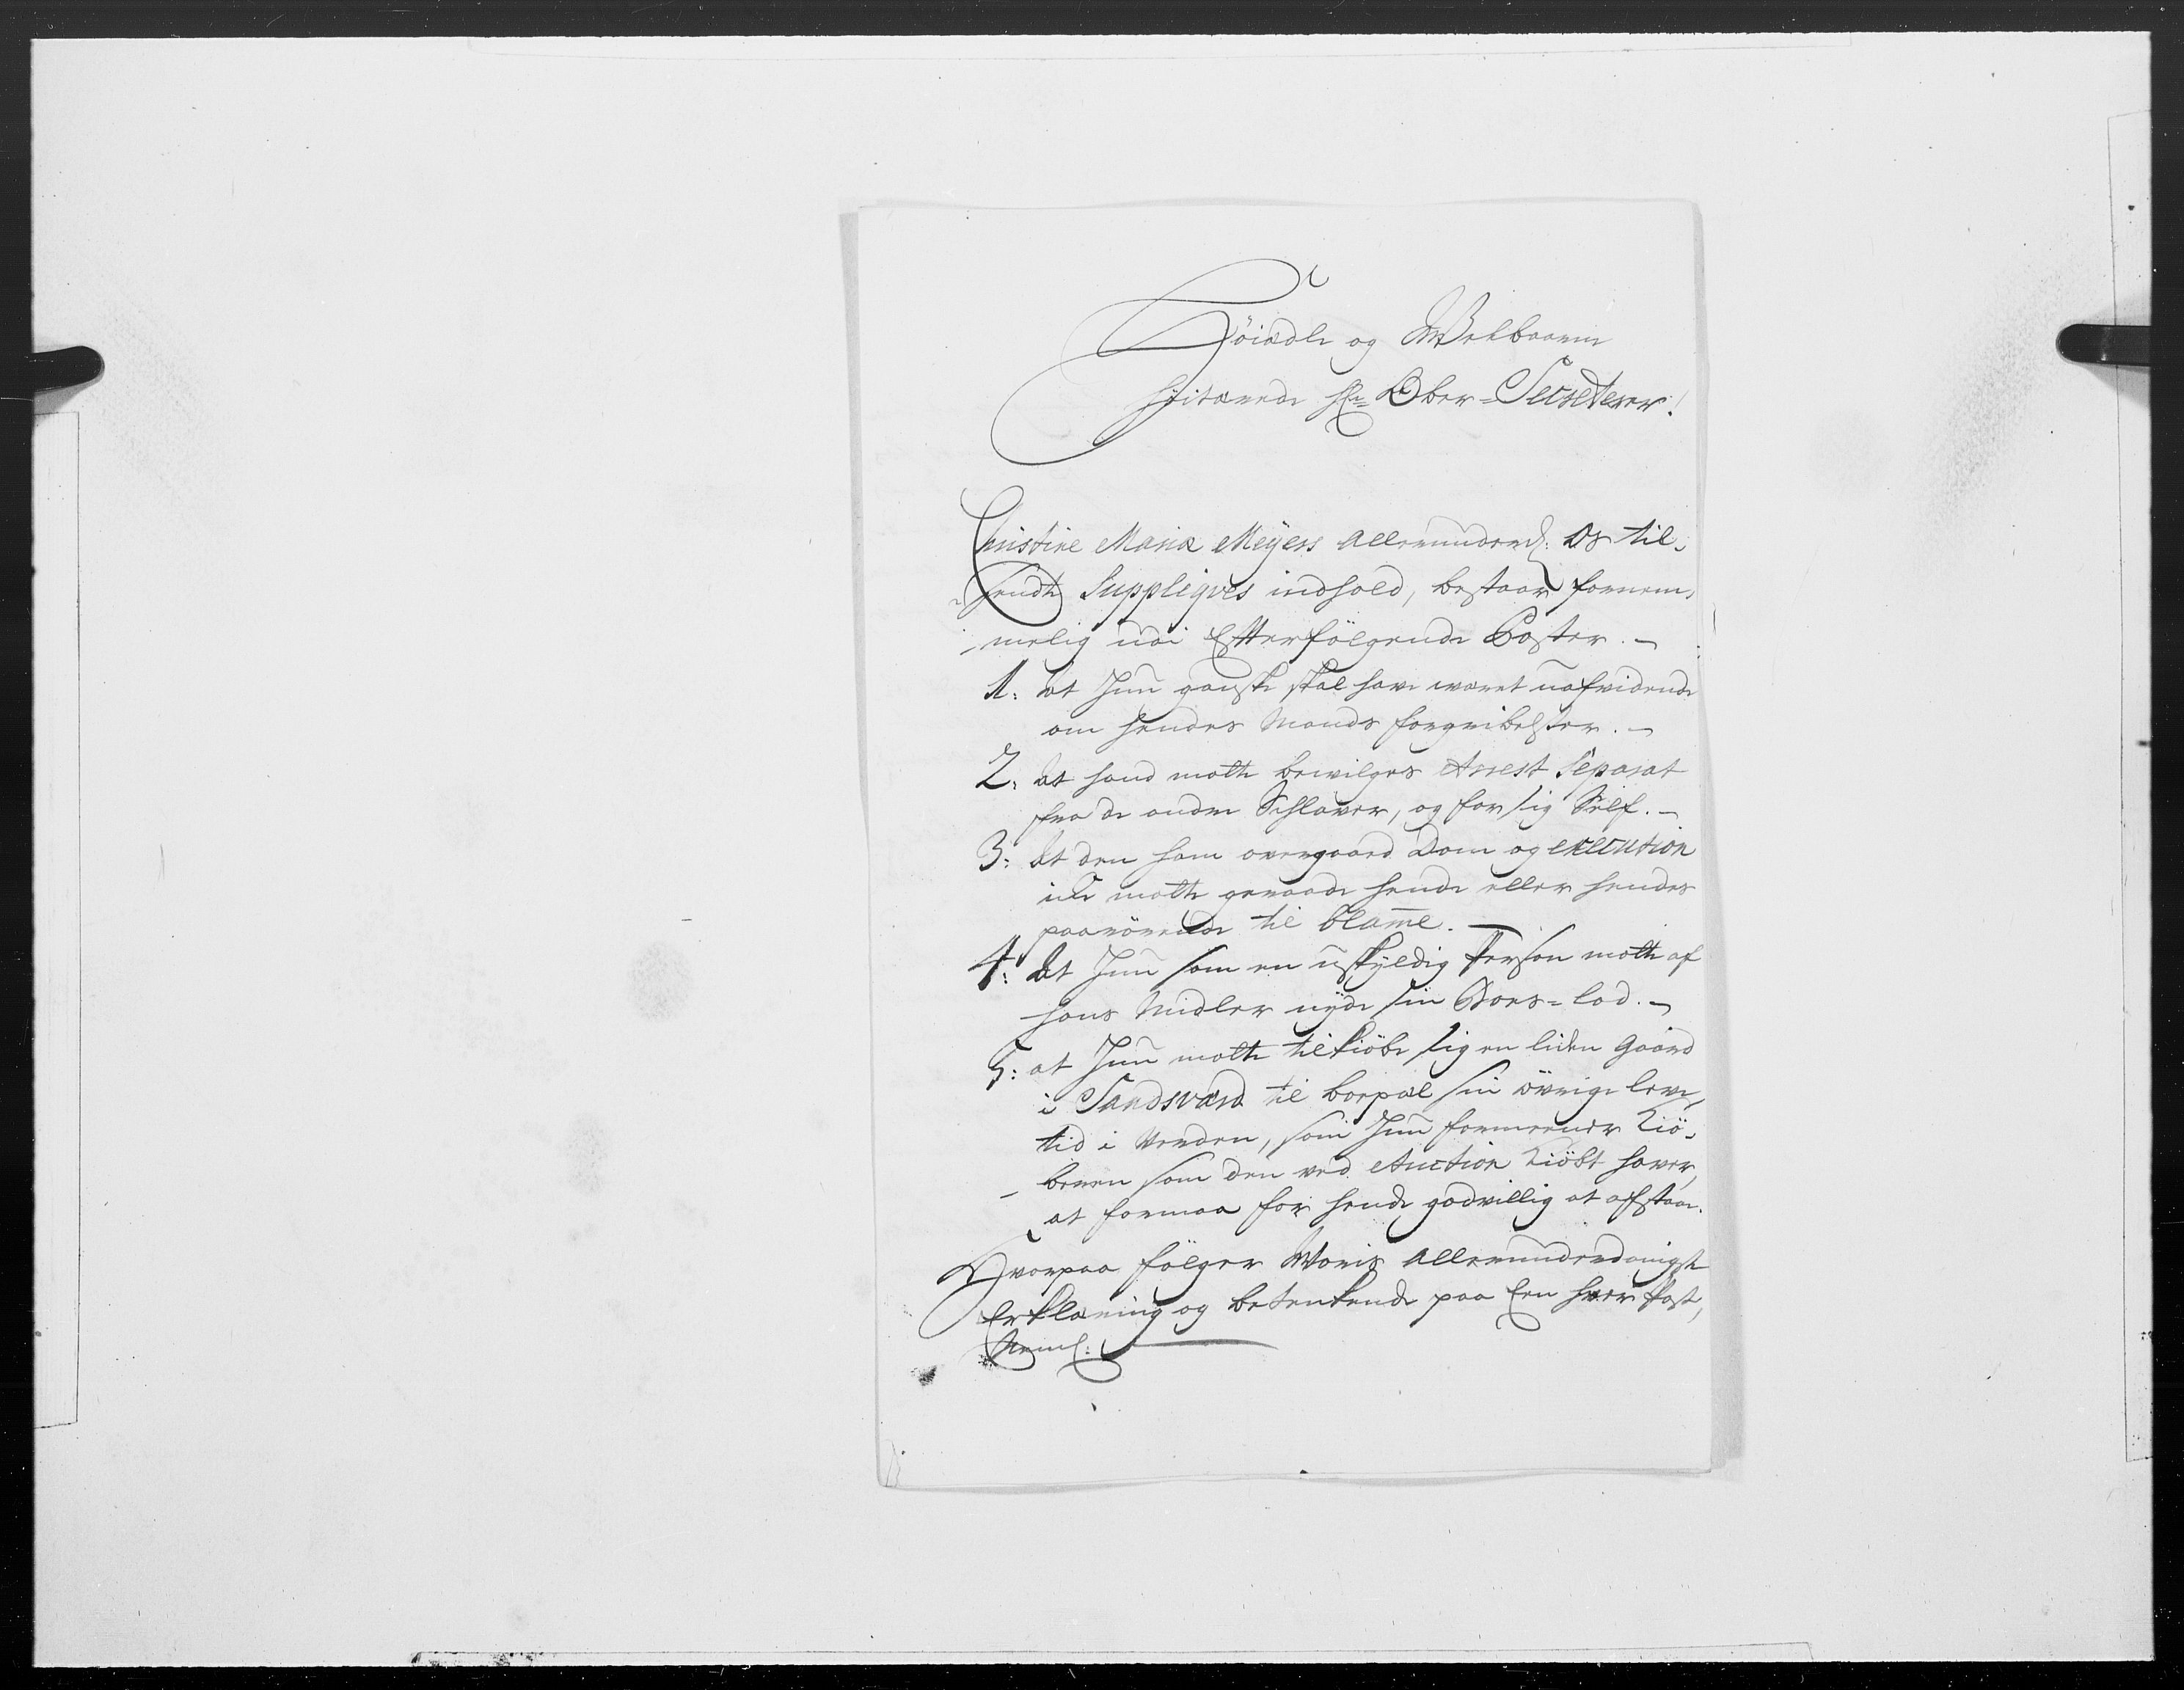 Höiædle og Welbaarne
Høitærede Hr Ober-Secreterer!
Christine Maria Meÿers allerunderd: Os til-
sendte Suppliqves indhold, bestaar fornem-
melig udi Efterfölgende Poster.
1. At Hun ganske skal have wæret uafvidende
om hendes Mands forgribelser.
2. At hand motte bevilges Arrest Separat
fra de andre Schlaver, og for sig Self.
3: At den ham overgaaed Dom og execution
icke motte geraade hende eller hendes
paarörende til blame.
4: At Hun som en uskÿldig Person motte af
hans Midler nÿde sin Boes-lod.
5: at Hun motte tilkiöbe sig en liden Gaard
i Sandsværd til boepæl sin övrige leve
tid i Verden, som Hun formeener Kiö-
beren som den ved Auction Kiöbt haver,
at formaa for hende godvillig at afstaae.
Hvorpaa fölger Woris allerunderdanigste
Erklæring og betenkende paa Een hver Post,
Neml: